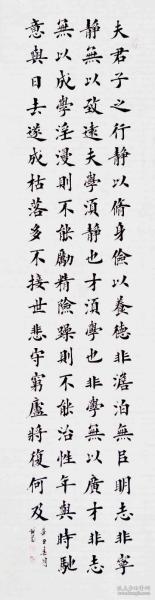 夫君子之行靜以脩身儉以養德非澹泊無㠯明志非寧
靜無以致遠夫學湏靜也才湏學也非學無以廣才非志
無以成學淫漫則不能勵精險躁則不能治性年與時馳
意與日去遂成枯落多不接世悲守窮廬將復何及